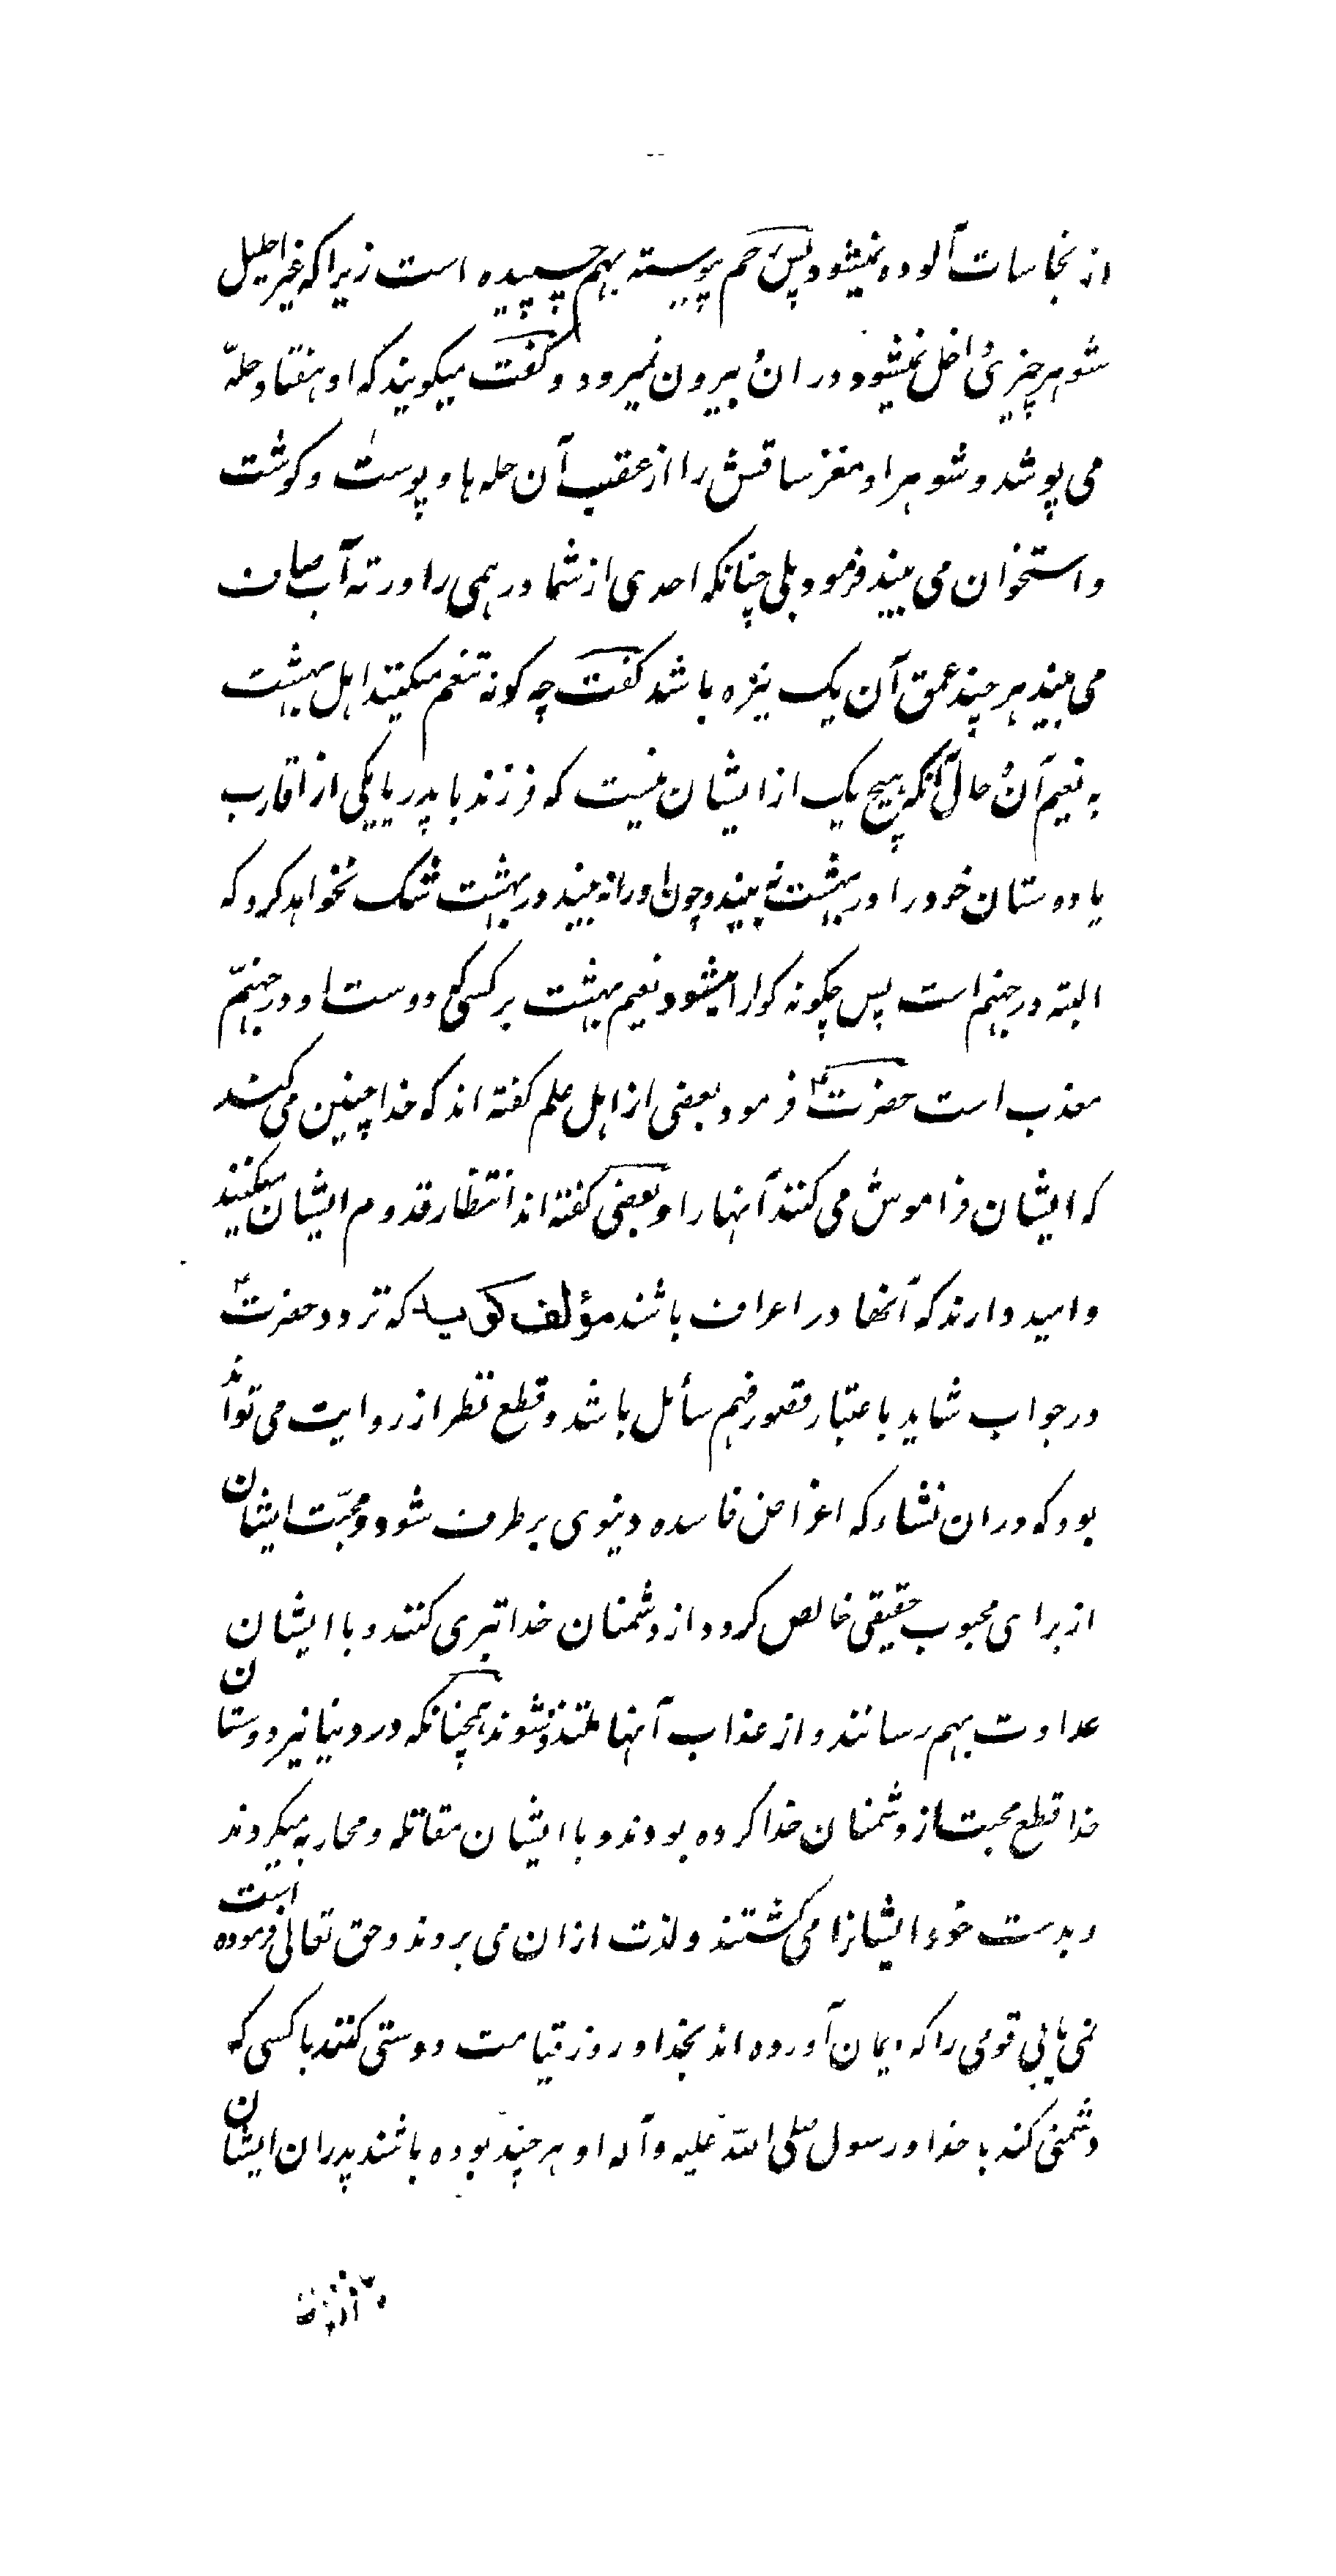 از نجاسات آلوده نمیشود پس رحم پیوسته بهم چسپیده است زیرا که غیر احلیل
شوهر چیزی داخل نمیشود در ان و بیرون نمیرود و گفت میکویند که او هفتاد حلّه
می پوشد و شوهر او مغز ساقش را از عقب آن حله ها و پوست و کوشت
و استخوان می بیند فرمود بلی چنانکه احدی از شما درهمی را در ته آب صاف
می بیند هر چند عمق آن یک نیزه باشد گفت چه کونه تنعم میکنند اهل بهشت
به نعیم آن و حال آنکه هیچ یک از ایشان نیست که فرزند یا پدر یا یکی از اقارب
یا دوستان خود را در بهشت نه بیند و چون او را نه بیند در بهشت شک نخواهد کرد که
البته در جهنم است پس چکونه کوارا میشود نعیم بهشت بر کسی که دوست او در جهنّم
معذب است حضرتؑ فرمود بعضی از اهل علم کفته اند که خدا چنین می کند
که ایشان فراموش می کنند آنها را و بعضی کفته اند انتظار قدوم ایشان میکنند
و امید دارند که آنها در اعراف باشند مؤلف گوید که تردد حضرتؑ
در جواب شاید باعتبار قصور فهم سأیل باشد و قطع نظر از روایت می تواند
بود که در ان نشاء که اغراض فاسده دینوی بر طرف شود و محبّت ایشان
از برای محبوب حقیقی خالص کرود از دشمنان خدا تبری کنند و با ایشان
عداوت بهم رسانند و از عذاب آنها ملتذذ شوند همچنانکه در دنیا نیز دوستان
خدا قطع محبت از دشمنان خدا کرده بودند و با ایشان مقاتله و محاربه میکردند
و بدست خود ایشانرا می کشتند و لذت ازان می بردند و حق تعالی فرموده است
نمی یابی قومی را که ایمان آورده اند بخدا و روز قیامت دوستی کنند با کسی که
دشمنی کند با خدا و رسول صلی الله علیه و آله او هر چند بوده باشند پدران ایشان